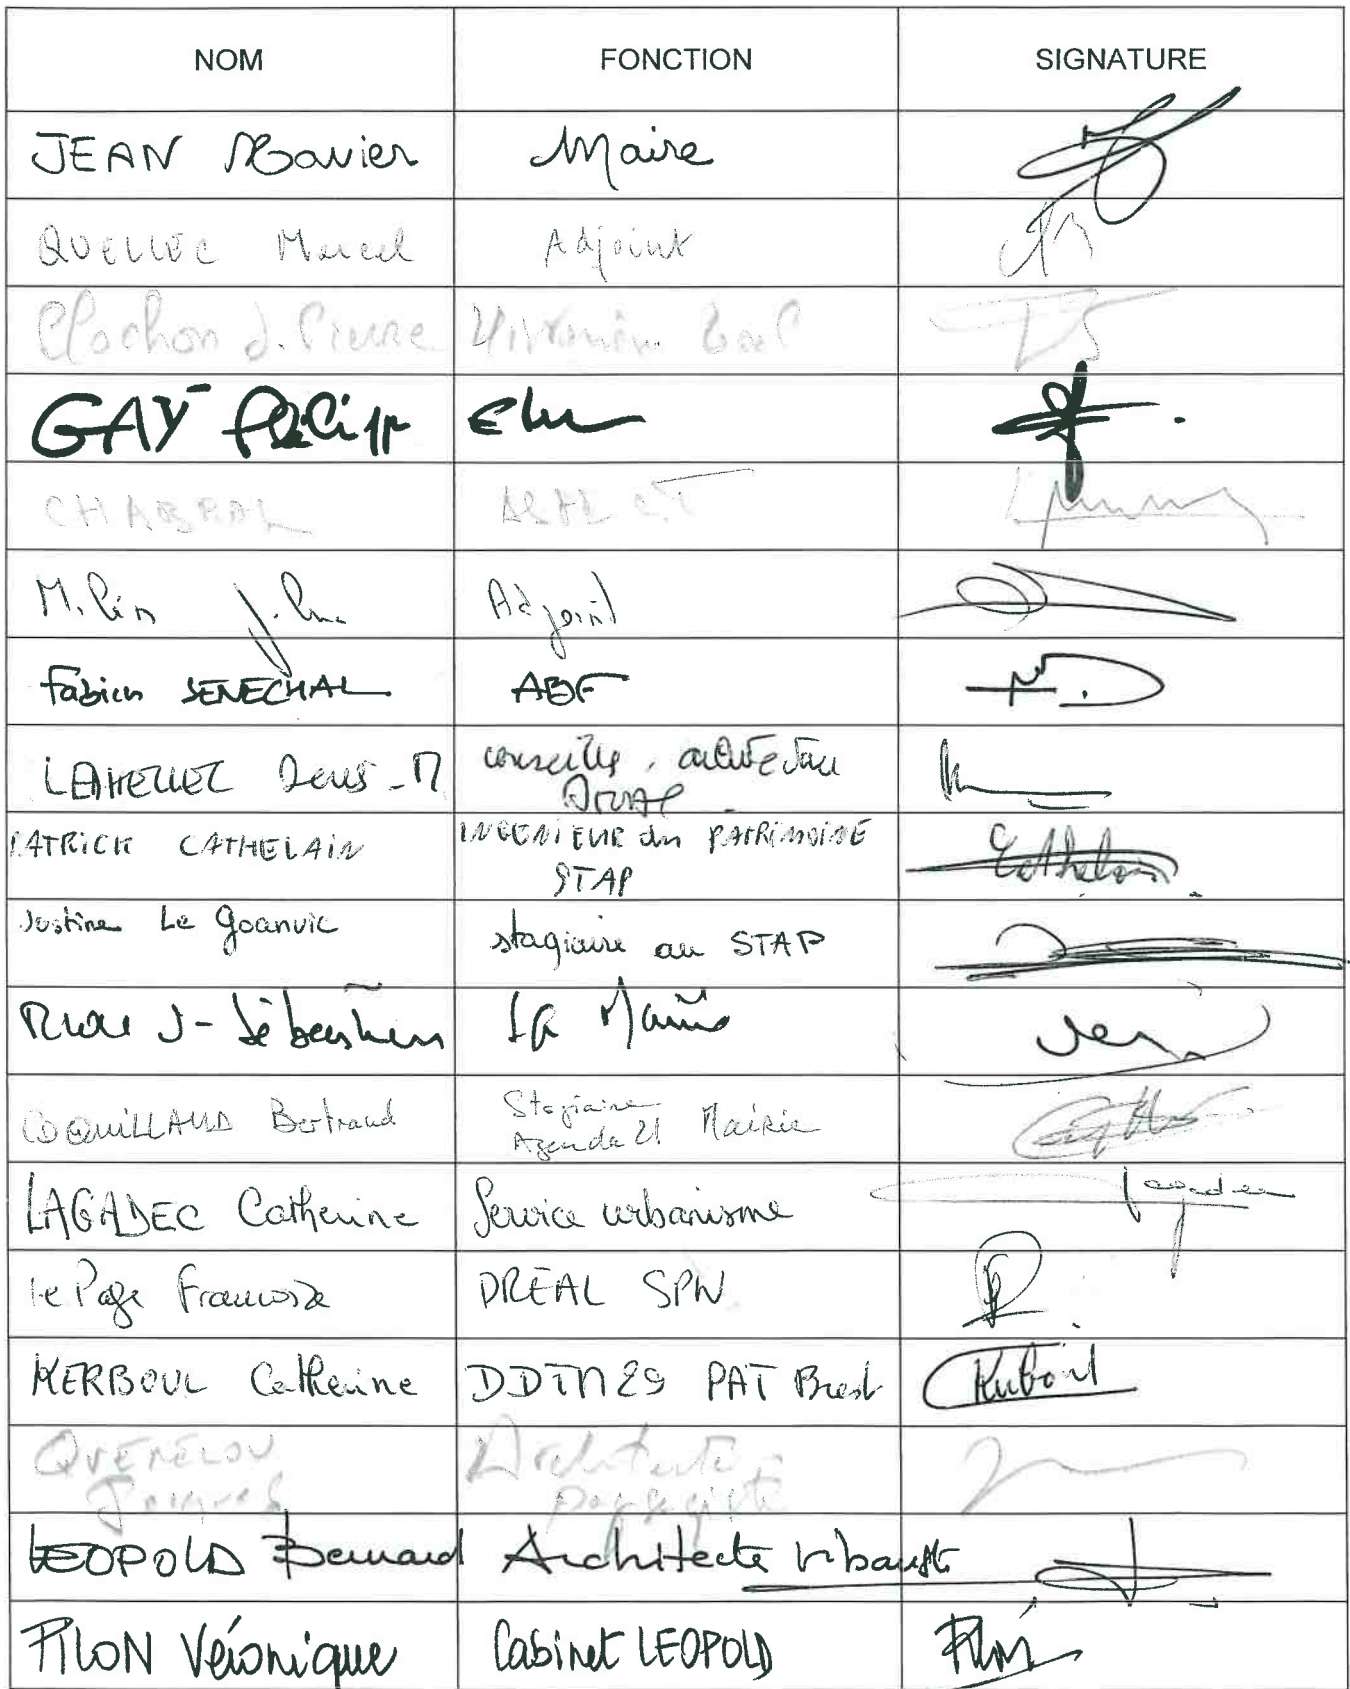 NOM FONCTION SIGNATURE
JEAN Xavier Maire
QUELLEC Marcel Adjoint
Clochon J. Pierre
GAY Philipp Elu
CHABRAL
Milin Adjoint
Fabien SENECHAL ABF
LAHELLEC Denis-M conseiller
PATRICK CATHELAIN INGENIEUR du PATRIMOINE
STAP Cathelain
Justine Le Goanvic stagiaire au STAP
J-Sébastien
COQUILLAUD Bertrand Stagiaire
Agenda 21 Mairie
LAGADEC Catherine Service urbanisme Lagadec
Le Page Francoise DREAL SPN
KERBOUL Catherine DDTM29 PAT Brest Kerboul
QUEMELOU Architecte
Jacques paysagiste
LEOPOLD Bernard Architecte Urbaniste
PILON Véronique Cabinet LEOPOLD Pilon